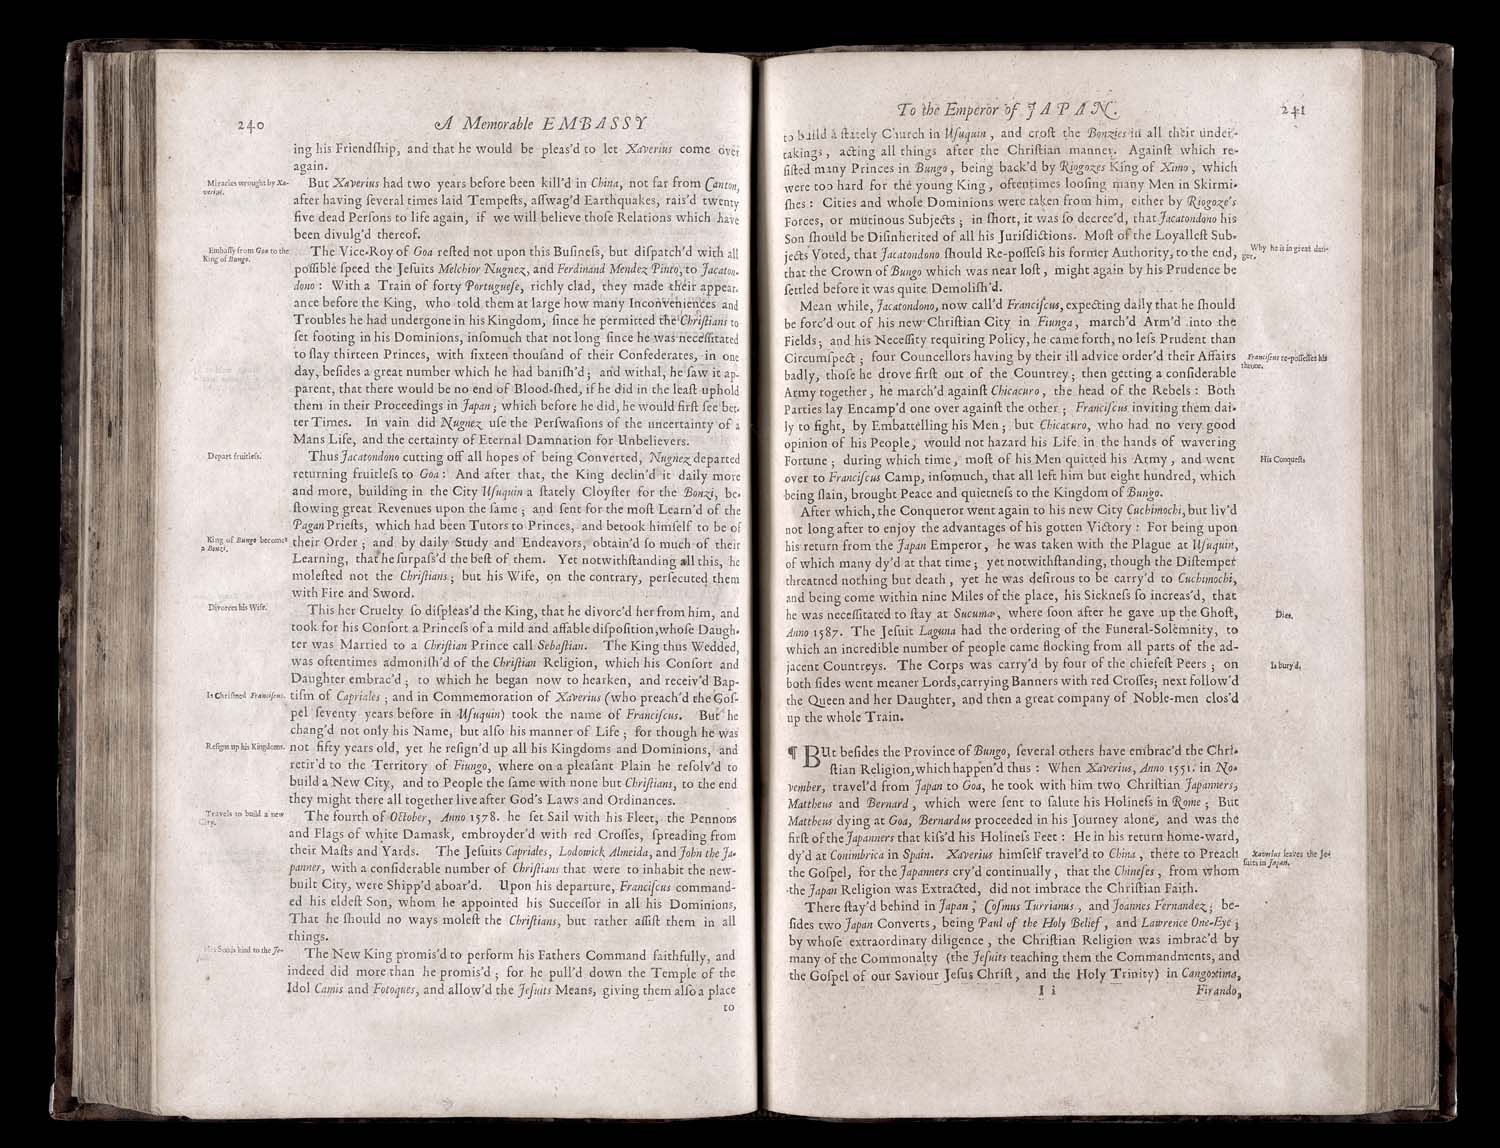 240
A Memorable EMBASSY
ing his Friendſhip, and that he would be pleas'd to let Xaverius come over
again.
Miracles wrought by Xa-
verius.
But Xaverius had two years before been kill'd in China, not far from Canton,
after having ſeveral times laid Tempeſts, aſſwag'd Earthquakes, rais'd twenty
five dead Perſons to life again, if we will believe thoſe Relations which have
been divulg'd thereof.
Embaſſy from Goa to the
King of Bungo.
The Vice-Roy of Goa reſted not upon this Buſineſs, but diſpatch'd with all
poſſible ſpeed the Jeſuits Melchior Nugnez, and Ferdinand Mendez Pinto, to Jacaton-
dono : With a Train of forty Portugueſe, richly clad, they made their appear-
ance before the King, who told them at large how many Inconveniences and
Troubles he had undergone in his Kingdom, ſince he permitted the Chriſtians to
ſet footing in his Dominions, inſomuch that not long ſince he was neceſſitated
to ſlay thirteen Princes, with ſixteen thouſand of their Confederates, in one
day, beſides a great number which he had baniſh'd ; and withal, he ſaw it ap-
parent, that there would be no end of Blood-ſhed, if he did in the leaſt uphold
them in their Proceedings in Japan ; which before he did, he would firſt ſee bet-
ter Times. In vain did Nugnez uſe the Perſwaſions of the uncertainty of a
Mans Life, and the certainty of Eternal Damnation for Unbelievers.
Depart fruitleſs.
Thus Jacatondono cutting off all hopes of being Converted, Nugnez departed
returning fruitleſs to Goa : And after that, the King declin'd it daily more
and more, building in the City Uſuquin a ſtately Cloyſter for the Bonzi, be-
ſtowing great Revenues upon the ſame ; and ſent for the moſt Learn'd of the
Pagan Prieſts, which had been Tutors to Princes, and betook himſelf to be of
King of Bungo becomes
a Bonzi.
their Order ; and by daily Study and Endeavors, obtain'd ſo much of their
Learning, that he ſurpaſs'd the beſt of them. Yet notwithſtanding all this, he
moleſted not the Chriſtians ; but his Wife, on the contrary, perſecuted them
with Fire and Sword.
Divorces his Wife.
This her Cruelty ſo diſpleas'd the King, that he divorc'd her from him, and
took for his Conſort a Princeſs of a mild and affable diſpoſition, whoſe Daugh-
ter was Married to a Chriſtian Prince call Sebaſtian. The King thus Wedded,
was oftentimes admoniſh'd of the Chriſtian Religion, which his Conſort and
Daughter embrac'd ; to which he began now to hearken, and receiv'd Bap-
Is Chriſtned Franciſcus.
tiſm of Capriales ; and in Commemoration of Xaverius (who preach'd the Goſ-
pel ſeventy years before in Uſuquin) took the name of Franciſcus. But he
chang'd not only his Name, but alſo his manner of Life ; for though he was
Reſigns up his Kingdoms.
not fifty years old, yet he reſign'd up all his Kingdoms and Dominions, and
retir'd to the Territory of Fiungo, where on a pleaſant Plain he reſolv'd to
build a New City, and to People the ſame with none but Chriſtians, to the end
they might there all together live after God's Laws and Ordinances.
Travels to build a new
City.
The fourth of October, Anno 1578. he ſet Sail with his Fleet, the Pennons
and Flags of white Damask, embroyder'd with red Croſſes, ſpreading from
their Maſts and Yards. The Jeſuits Capriales, Lodowick Almeida, and John the Ja-
panner, with a conſiderable number of Chriſtians that were to inhabit the new-
built City, were Shipp'd aboar'd. Upon his departure, Franciſcus command-
ed his eldeſt Son, whom he appointed his Succeſſor in all his Dominions,
That he ſhould no ways moleſt the Chriſtians, but rather aſſiſt them in all
things.
His Son is kind to the Je-
The New King promis'd to perform his Fathers Command faithfully, and
indeed did more than he promis'd ; for he pull'd down the Temple of the
Idol Camis and Fotoques, and allow'd the Jeſuits Means, giving them alſo a place
to
To the Emperor of JAPAN.
241
to build a ſtately Church in Uſuquin, and croſt the Bonzies in all their under-
takings, acting all things after the Chriſtian manner. Againſt which re-
ſiſted many Princes in Bungo, being back'd by Riogozes King of Ximo, which
were too hard for the young King, oftentimes looſing many Men in Skirmi-
ſhes : Cities and whole Dominions were taken from him, either by Riogoze's
Forces, or mutinous Subjects ; in ſhort, it was ſo decree'd, that Jacatondono his
Son ſhould be Diſinherited of all his Juriſdictions. Moſt of the Loyalleſt Sub-
jects Voted, that Jacatondono ſhould Re-poſſeſs his former Authority, to the end,
Why he is in great dan-
ger.
that the Crown of Bungo which was near loſt, might again by his Prudence be
ſettled before it was quite Demoliſh'd.
Mean while, Jacatondono, now call'd Franciſcus, expecting daily that he ſhould
be forc'd out of his new Chriſtian City in Fiunga, march'd Arm'd into the
Fields ; and his Neceſſity requiring Policy, he came forth, no leſs Prudent than
Circumſpect ; four Councellors having by their ill advice order'd their Affairs
Franciſcus re-poſſeſſes his
throne.
badly, thoſe he drove firſt out of the Countrey ; then getting a conſiderable
Army together, he march'd againſt Chicacuro, the head of the Rebels : Both
Parties lay Encamp'd one over againſt the other ; Franciſcus inviting them dai-
ly to fight, by Embattelling his Men ; but Chicacuro, who had no very good
opinion of his People, would not hazard his Life in the hands of wavering
Fortune ; during which time, moſt of his Men quitted his Army, and went
His Conqueſts
over to Franciſcus Camp, inſomuch, that all left him but eight hundred, which
being ſlain, brought Peace and quietneſs to the Kingdom of Bungo.
After which, the Conqueror went again to his new City Cuchimochi, but liv'd
not long after to enjoy the advantages of his gotten Victory : For being upon
his return from the Japan Emperor, he was taken with the Plague at Uſuquin,
of which many dy'd at that time ; yet notwithſtanding, though the Diſtemper
threatned nothing but death, yet he was deſirous to be carry'd to Cuchimochi,
and being come within nine Miles of the place, his Sickneſs ſo increas'd, that
he was neceſſitated to ſtay at Sucuma, where ſoon after he gave up the Ghoſt,
Dies.
Anno 1587. The Jeſuit Laguna had the ordering of the Funeral-Solemnity, to
which an incredible number of people came flocking from all parts of the ad-
jacent Countreys. The Corps was carry'd by four of the chiefeſt Peers ; on
Is bury'd.
both ſides went meaner Lords, carrying Banners with red Croſſes; next follow'd
the Queen and her Daughter, and then a great company of Noble-men clos'd
up the whole Train.
¶ BUt beſides the Province of Bungo, ſeveral others have embrac'd the Chri-
ſtian Religion, which happen'd thus : When Xaverius, Anno 1551. in No-
vember, travel'd from Japan to Goa, he took with him two Chriſtian Japanners,
Mattheus and Bernard, which were ſent to ſalute his Holineſs in Rome ; But
Mattheus dying at Goa, Bernardus proceeded in his Journey alone, and was the
firſt of the Japanners that kiſs'd his Holineſs Feet : He in his return home-ward,
dy'd at Conimbrica in Spain. Xaverius himſelf travel'd to China, there to Preach
Xaverius leaves the Je-
ſuits in Japan.
the Goſpel, for the Japanners cry'd continually, that the Chineſes, from whom
the Japan Religion was Extracted, did not imbrace the Chriſtian Faith.
There ſtay'd behind in Japan, Coſmus Turrianus, and Joannes Fernandez ; be-
ſides two Japan Converts, being Paul of the Holy Belief, and Lawrence One-Eye ;
by whoſe extraordinary diligence, the Chriſtian Religion was imbrac'd by
many of the Commonalty (the Jeſuits teaching them the Commandments, and
the Goſpel of our Saviour Jeſus Chriſt, and the Holy Trinity) in Cangoxima,
I i
Firando,